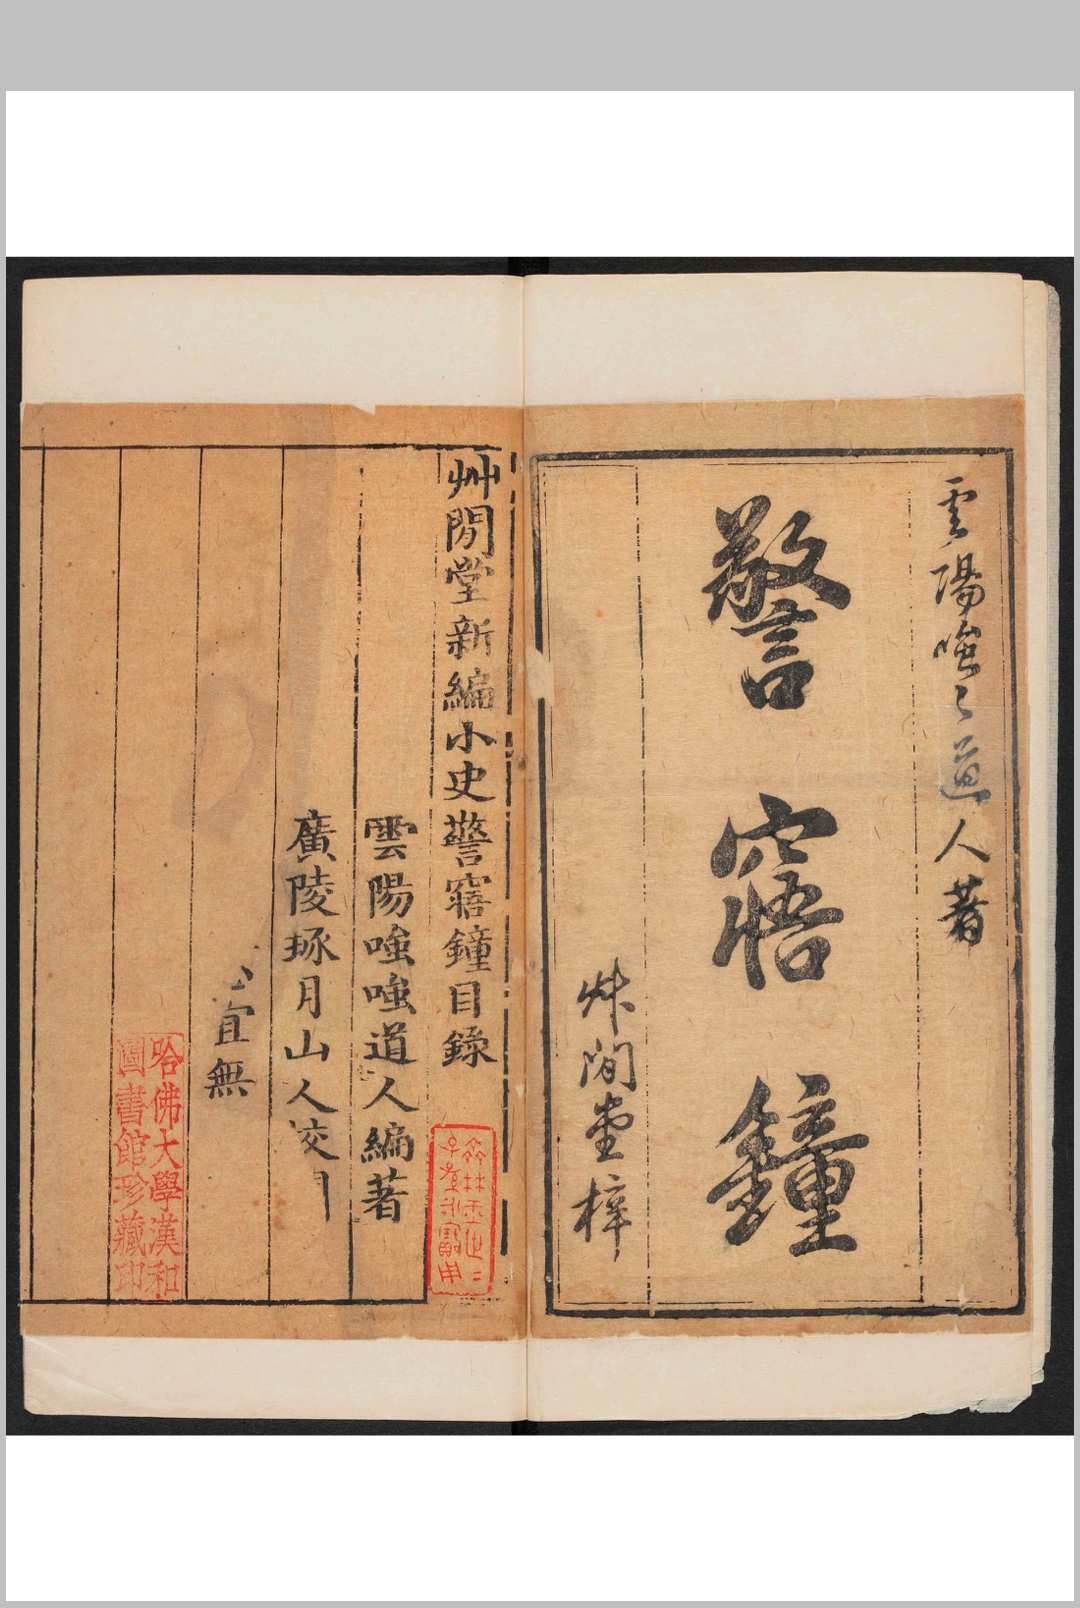 雲陽嗤〻道人著
警寤鐘
艸閒堂梓
艸閒堂新編小史警寤鐘目錄
雲陽嗤嗤道人編著
廣陵琢月山人校
宜無
哈佛大學漢和
圖書館珍藏印